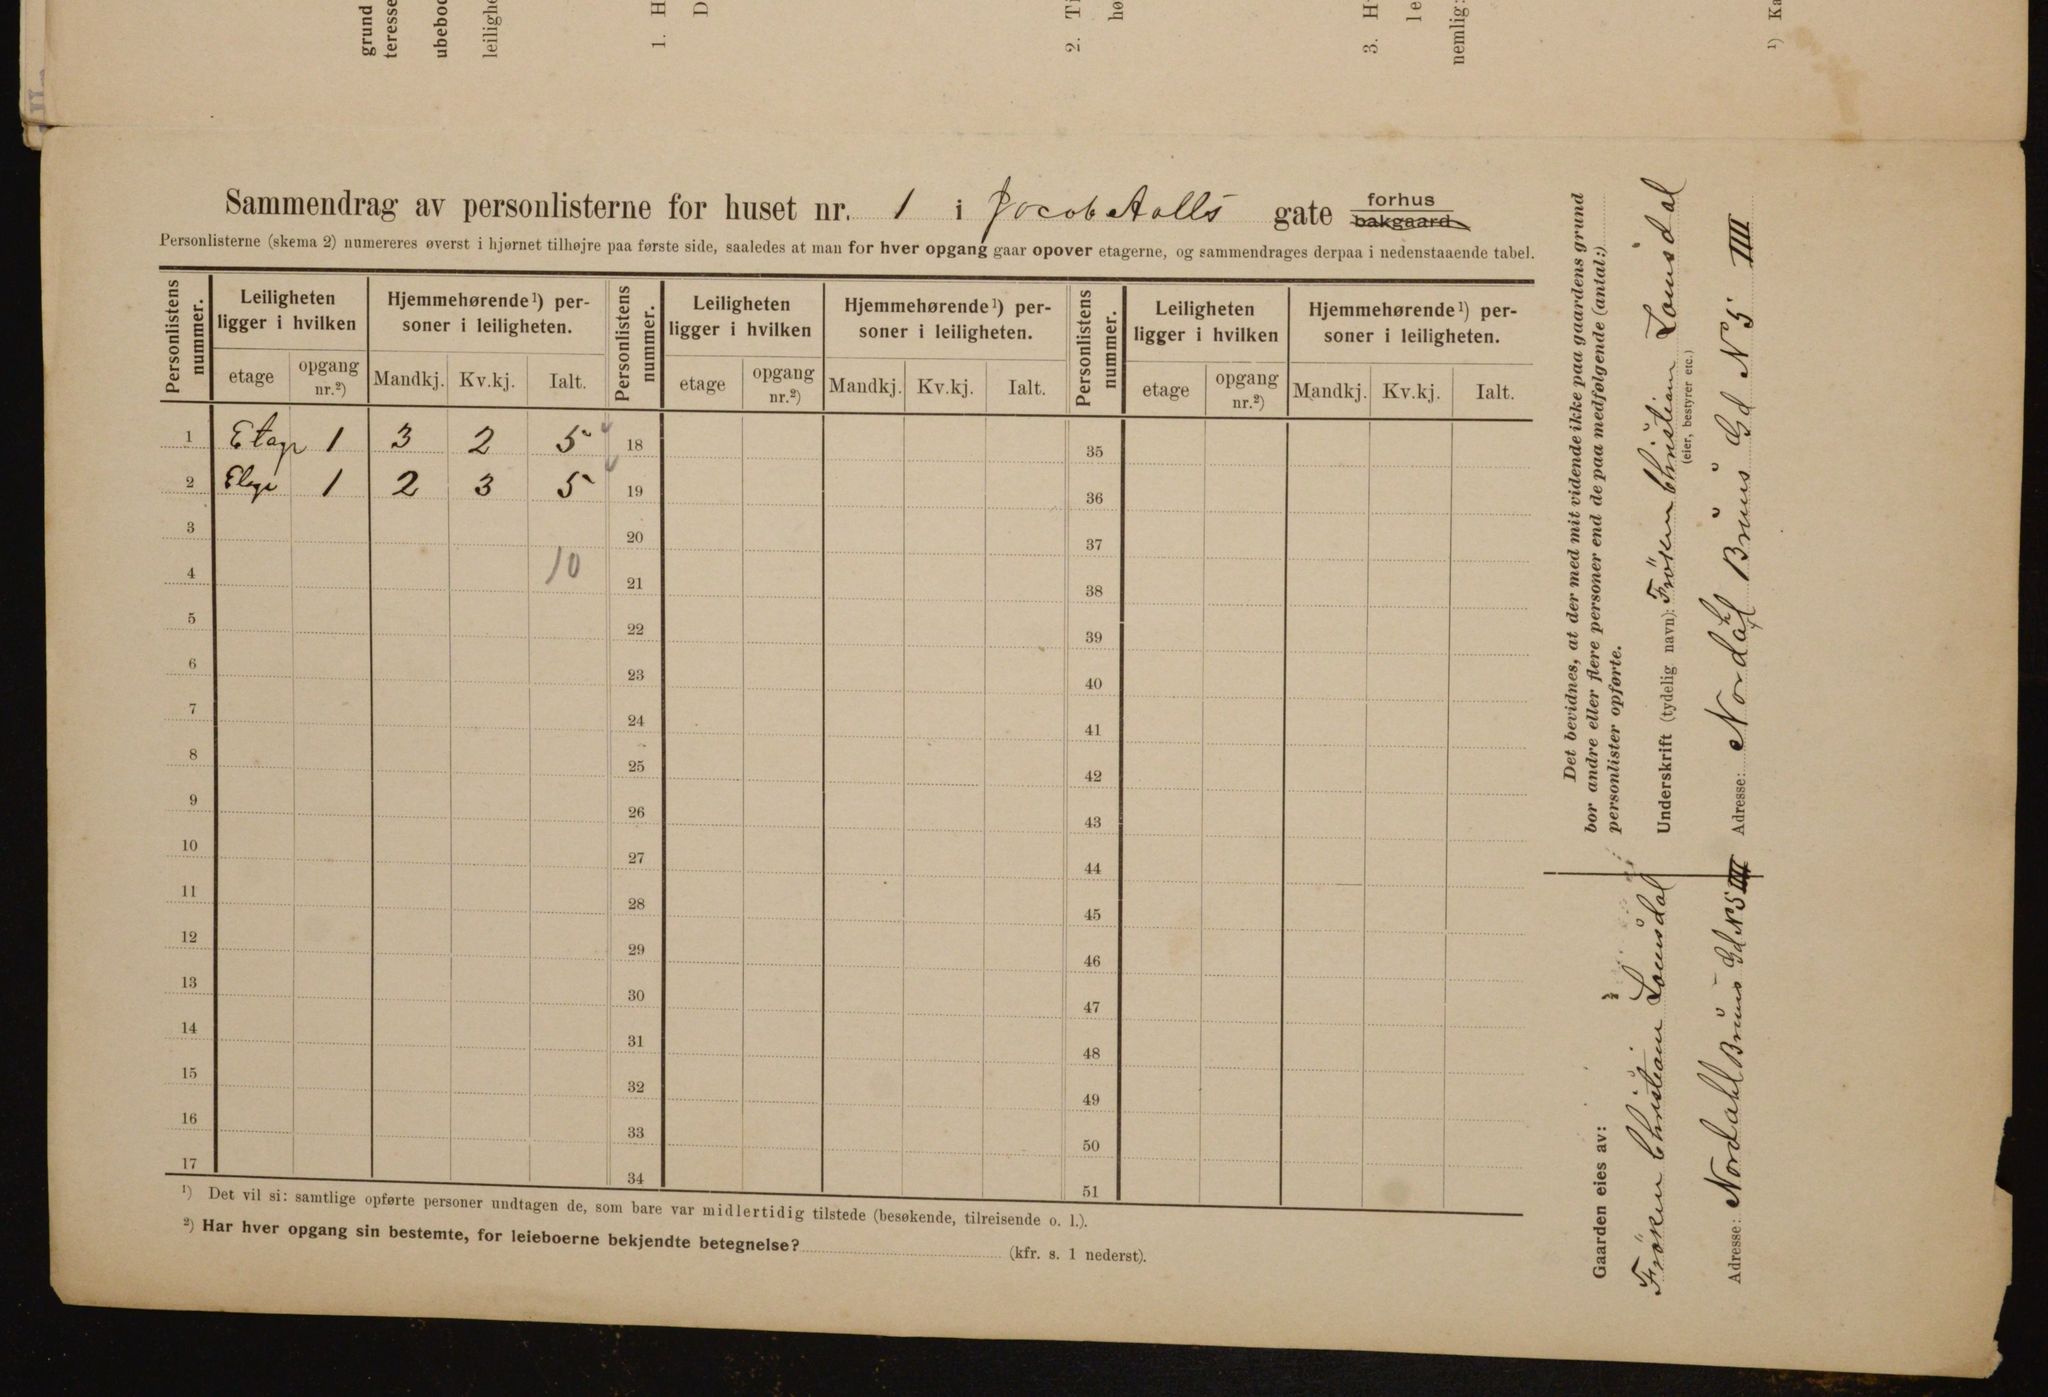 grund
teresse
ubeboe
leilighe
1. H
D
2. Ti
hø
3. H
le
nemlig:
¹) Ka
Sammendrag av personlisterne for huset nr. 1 i Jacob Aalls gate forhus bakgaard
Personlisterne (skema 2) numereres øverst i hjørnet tilhøjre paa første side, saaledes at man for hver opgang gaar opover etagerne, og sammendrages derpaa i nedenstaaende tabel.
Personlistens nummer. Leiligheten ligger i hvilken Hjemmehørende¹) personer i leiligheten. Personlistens nummer. Leiligheten ligger i hvilken Hjemmehørende¹) personer i leiligheten. Personlistens nummer. Leiligheten ligger i hvilken Hjemmehørende¹) personer i leiligheten.
etage opgang nr.²) Mandkj. Kv.kj. Ialt. etage opgang nr.²) Mandkj. Kv.kj. Ialt. etage opgang nr.²) Mandkj. Kv.kj. Ialt.
1 Etage 1 3 2 5 18 35
2 Etage 1 2 3 5 19 36
3 20 37
4 10 21 38
5 22 39
6 23 40
7 24 41
8 25 42
9 26 43
10 27 44
11 28 45
12 29 46
13 30 47
14 31 48
15 32 49
16 33 50
17 34 51
¹) Det vil si: samtlige opførte personer undtagen de, som bare var midlertidig tilstede (besøkende, tilreisende o. l.).
²) Har hver opgang sin bestemte, for leieboerne bekjendte betegnelse? (kfr. s. 1 nederst).
Det bevidnes, at der med mit vidende ikke paa gaardens grund
bor andre eller flere personer end de paa medfølgende (antal:)
personlister opførte.
Underskrift (tydelig navn): Frøken Christian Lousdal
(eier, bestyrer etc.)
Adresse: Nordahl Bruns Gd N 5 IIII
Gaarden eies av:
Frøken Christian Lousdal
Adresse: Nordahl Bruns Gd N 5 IIII